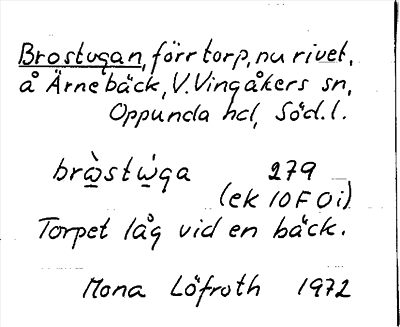 Brostugan, förr torp, nu rivet,
å Ärnebäck, V. Vingåkers sn,
Oppunda hd, Söd. l.
brὼ̱stὼ̱ga 279
(ek 10F 0i)
Torpet låg vid en bäck.
Mona Löfroth 1972